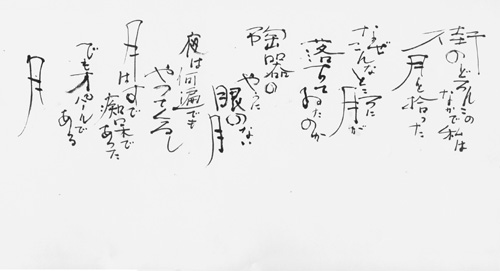 街のどろんこのなかで私は
月を拾った
なぜこんなとこに月が
落ちてゐたのか
陶器の
やうに
眼のない
月
夜は何遍でも
やってくるし
月はすで
痴呆で
あった
でもオパールで
ある
月